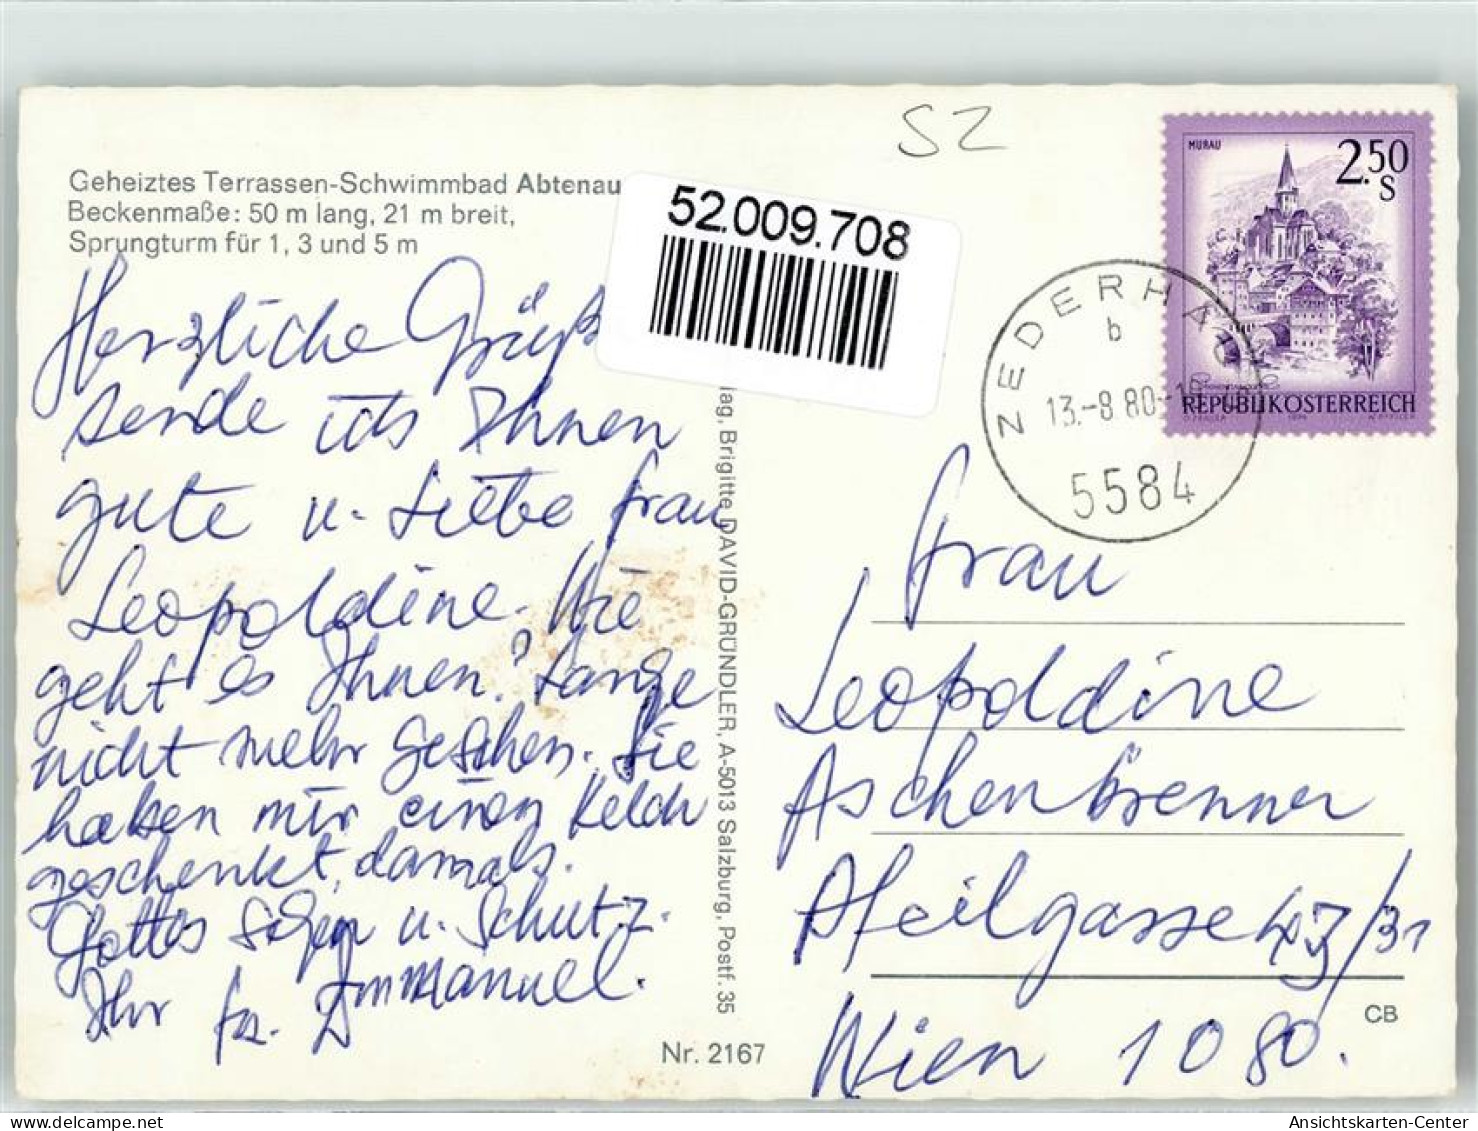 SZ
Geheiztes Terrassen-Schwimmbad Abtenau
Beckenmaße: 50 m lang, 21 m breit,
Sprungturm für 1, 3 und 5 m
52.009.708
MURAU
2.50
S
REPUBLIK OSTERREICH
ZEDERHAUS
b
13.-8.80-16
5584
Herzliche Grüße
sende ich Ihnen
gute u. Liebe Frau
Leopoldine. Wie
geht es Ihnen? Lange
nicht mehr gesehen. Sie
haben mir einen Kelch
geschenkt, damals.
Gottes Segen u. Schutz.
Ihr fr. Immanuel.
lag, Brigitte DAVID-GRÜNDLER, A-5013 Salzburg, Postf. 35
Nr. 2167
Frau
Leopoldine
Aschenbrenner
Pfeilgasse 47/31
Wien 1080.
CB
Ansichtskarten-Center